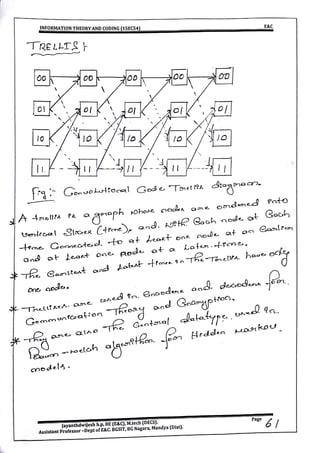 INFORMATION THEORY AND CODING (15EC54) E&C
TRELLIS:
00 00 00 00 00
01 01 01 01 01
10 10 10 10 10
11 11 11 11 11
Fig:- Convolutional Code Trellis diagram.
* A trellis is a graph whose nodes are ordered into
vertical slices (time), and with each node at each
time connected to at least one node at an earlier
and at least one node at a later time.
* The earliest and latest times in the trellis have only
one node.
* Trellises are used in encoders and decoders for
communication theory and encryption.
* They are also the central datatype used in
Baum-Welch algorithm for Hidden Markov
models.
Jayanthdwijesh h.p, BE (E&C), M.tech (DECS).
Assistant Professor – Dept of E&C. BGSIT, BG Nagara, Mandya (Dist).
Page 61